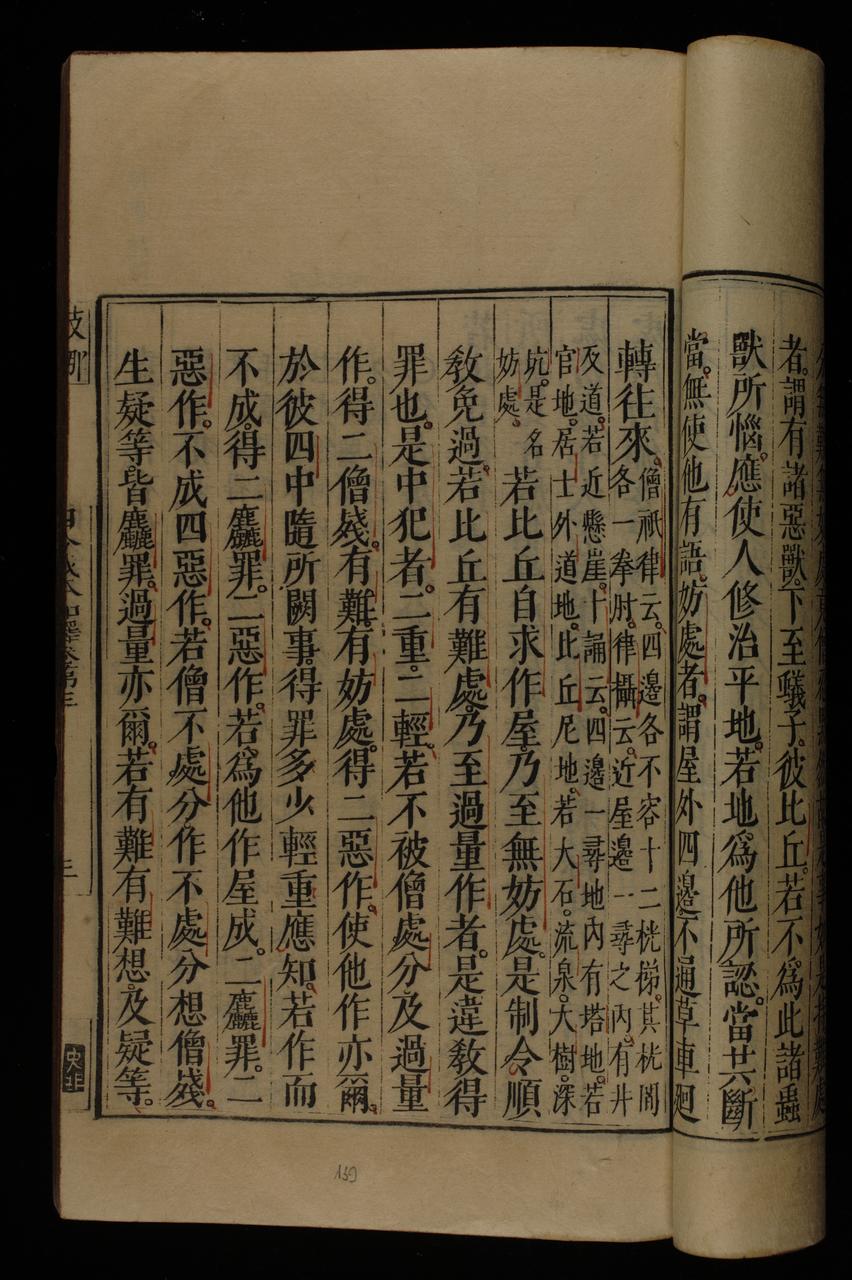 者。謂有諸惡獸。下至蟻子。彼比丘。若不爲此諸蟲
獸所惱。應使人修治平地。若地爲他所認。當共斷
當。無使他有語。妨處者。謂屋外四邊不通草車廻
轉往來。僧祇律云。四邊各不容十二桄梯。其桄間
各一拳肘。律攝云。近屋邊一尋之內。有井
及道。若近懸崖。十誦云。四邊一尋地內有塔地。若
官地。居士外道地。比丘尼地。若大石。流泉。大樹。深
坑。是名
妨處。
若比丘自求作屋。乃至無妨處。是制令順
敎免過。若比丘有難處。乃至過量作者。是違敎得
罪也。是中犯者。二重。二輕。若不被僧處分及過量
作。得二僧殘。有難。有妨處。得二惡作。使他作亦爾。
於彼四中隨所闕事。得罪多少輕重應知。若作而
不成。得二麤罪。二惡作。若爲他作屋成。二麤罪。二
惡作。不成四惡作。若僧不處分作不處分想僧殘。
生疑等。皆麤罪。過量亦爾。若有難有難想。及疑等。
三
139